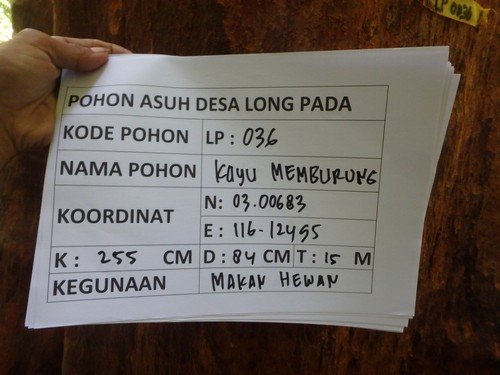 LP 036
POHON ASUH DESA LONG PADA
KODE POHON LP : 036
NAMA POHON KAYU MEMBURUNG
KOORDINAT N: 03.00683
E : 116-12495
K : 255 CM D : 84 CM T : 15 M
KEGUNAAN MAKAN HEWAN